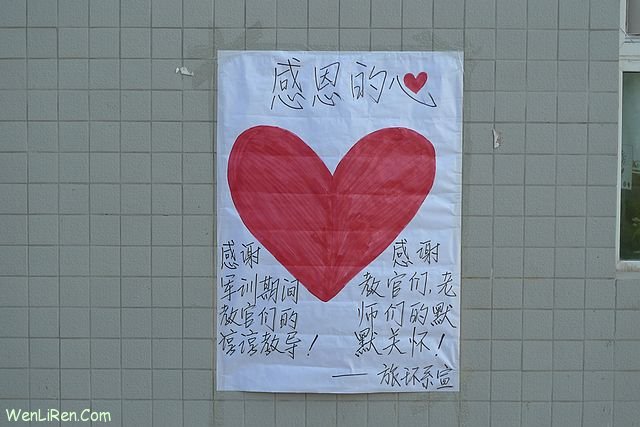 感恩的心
感谢
军训期间
教官们的
谆谆教导！
感谢
教官们、老
师们的默
默关怀！
——旅环系宣
WenLiRen.Com